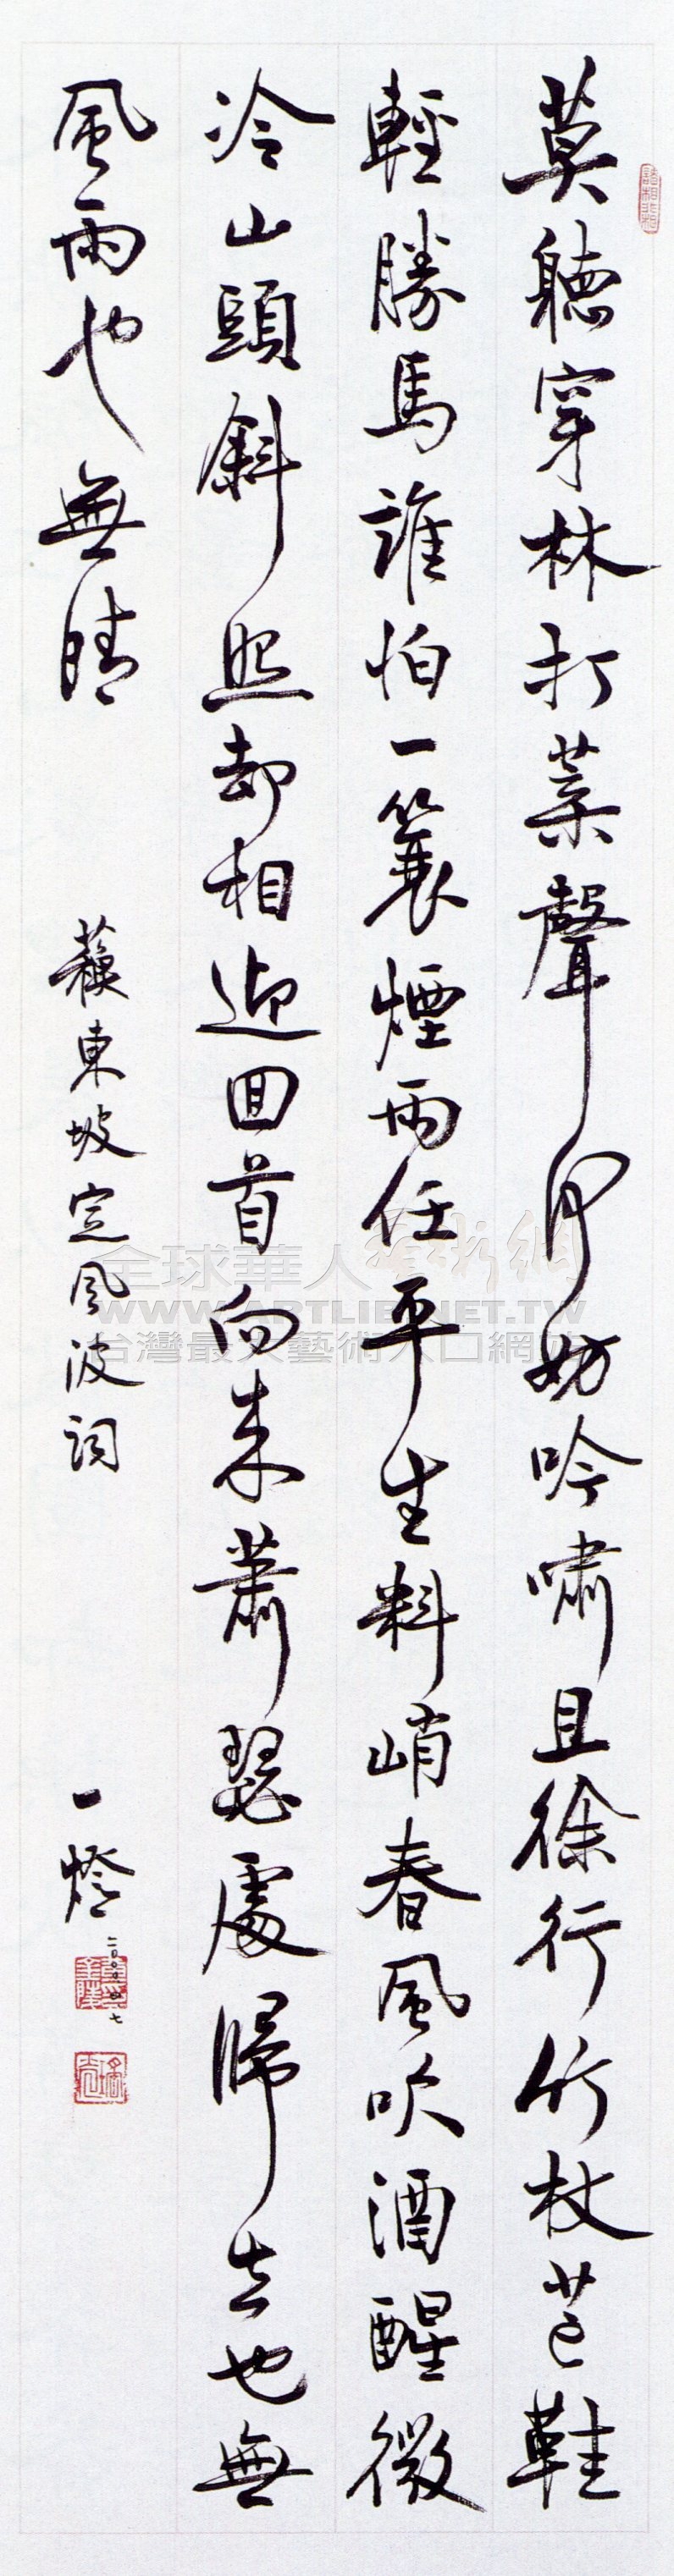 莫聽穿林打葉聲何妨吟嘯且徐行竹杖芒鞋
輕勝馬誰怕一簑煙雨任平生料峭春風吹酒醒微
冷山頭斜照却相迎回首向来蕭瑟處歸去也無
風雨也無晴
蘇東坡定風波詞
一燈
全球華人藝術網
WWW.ARTLIB.NET.TW
台灣最大藝術入口網站